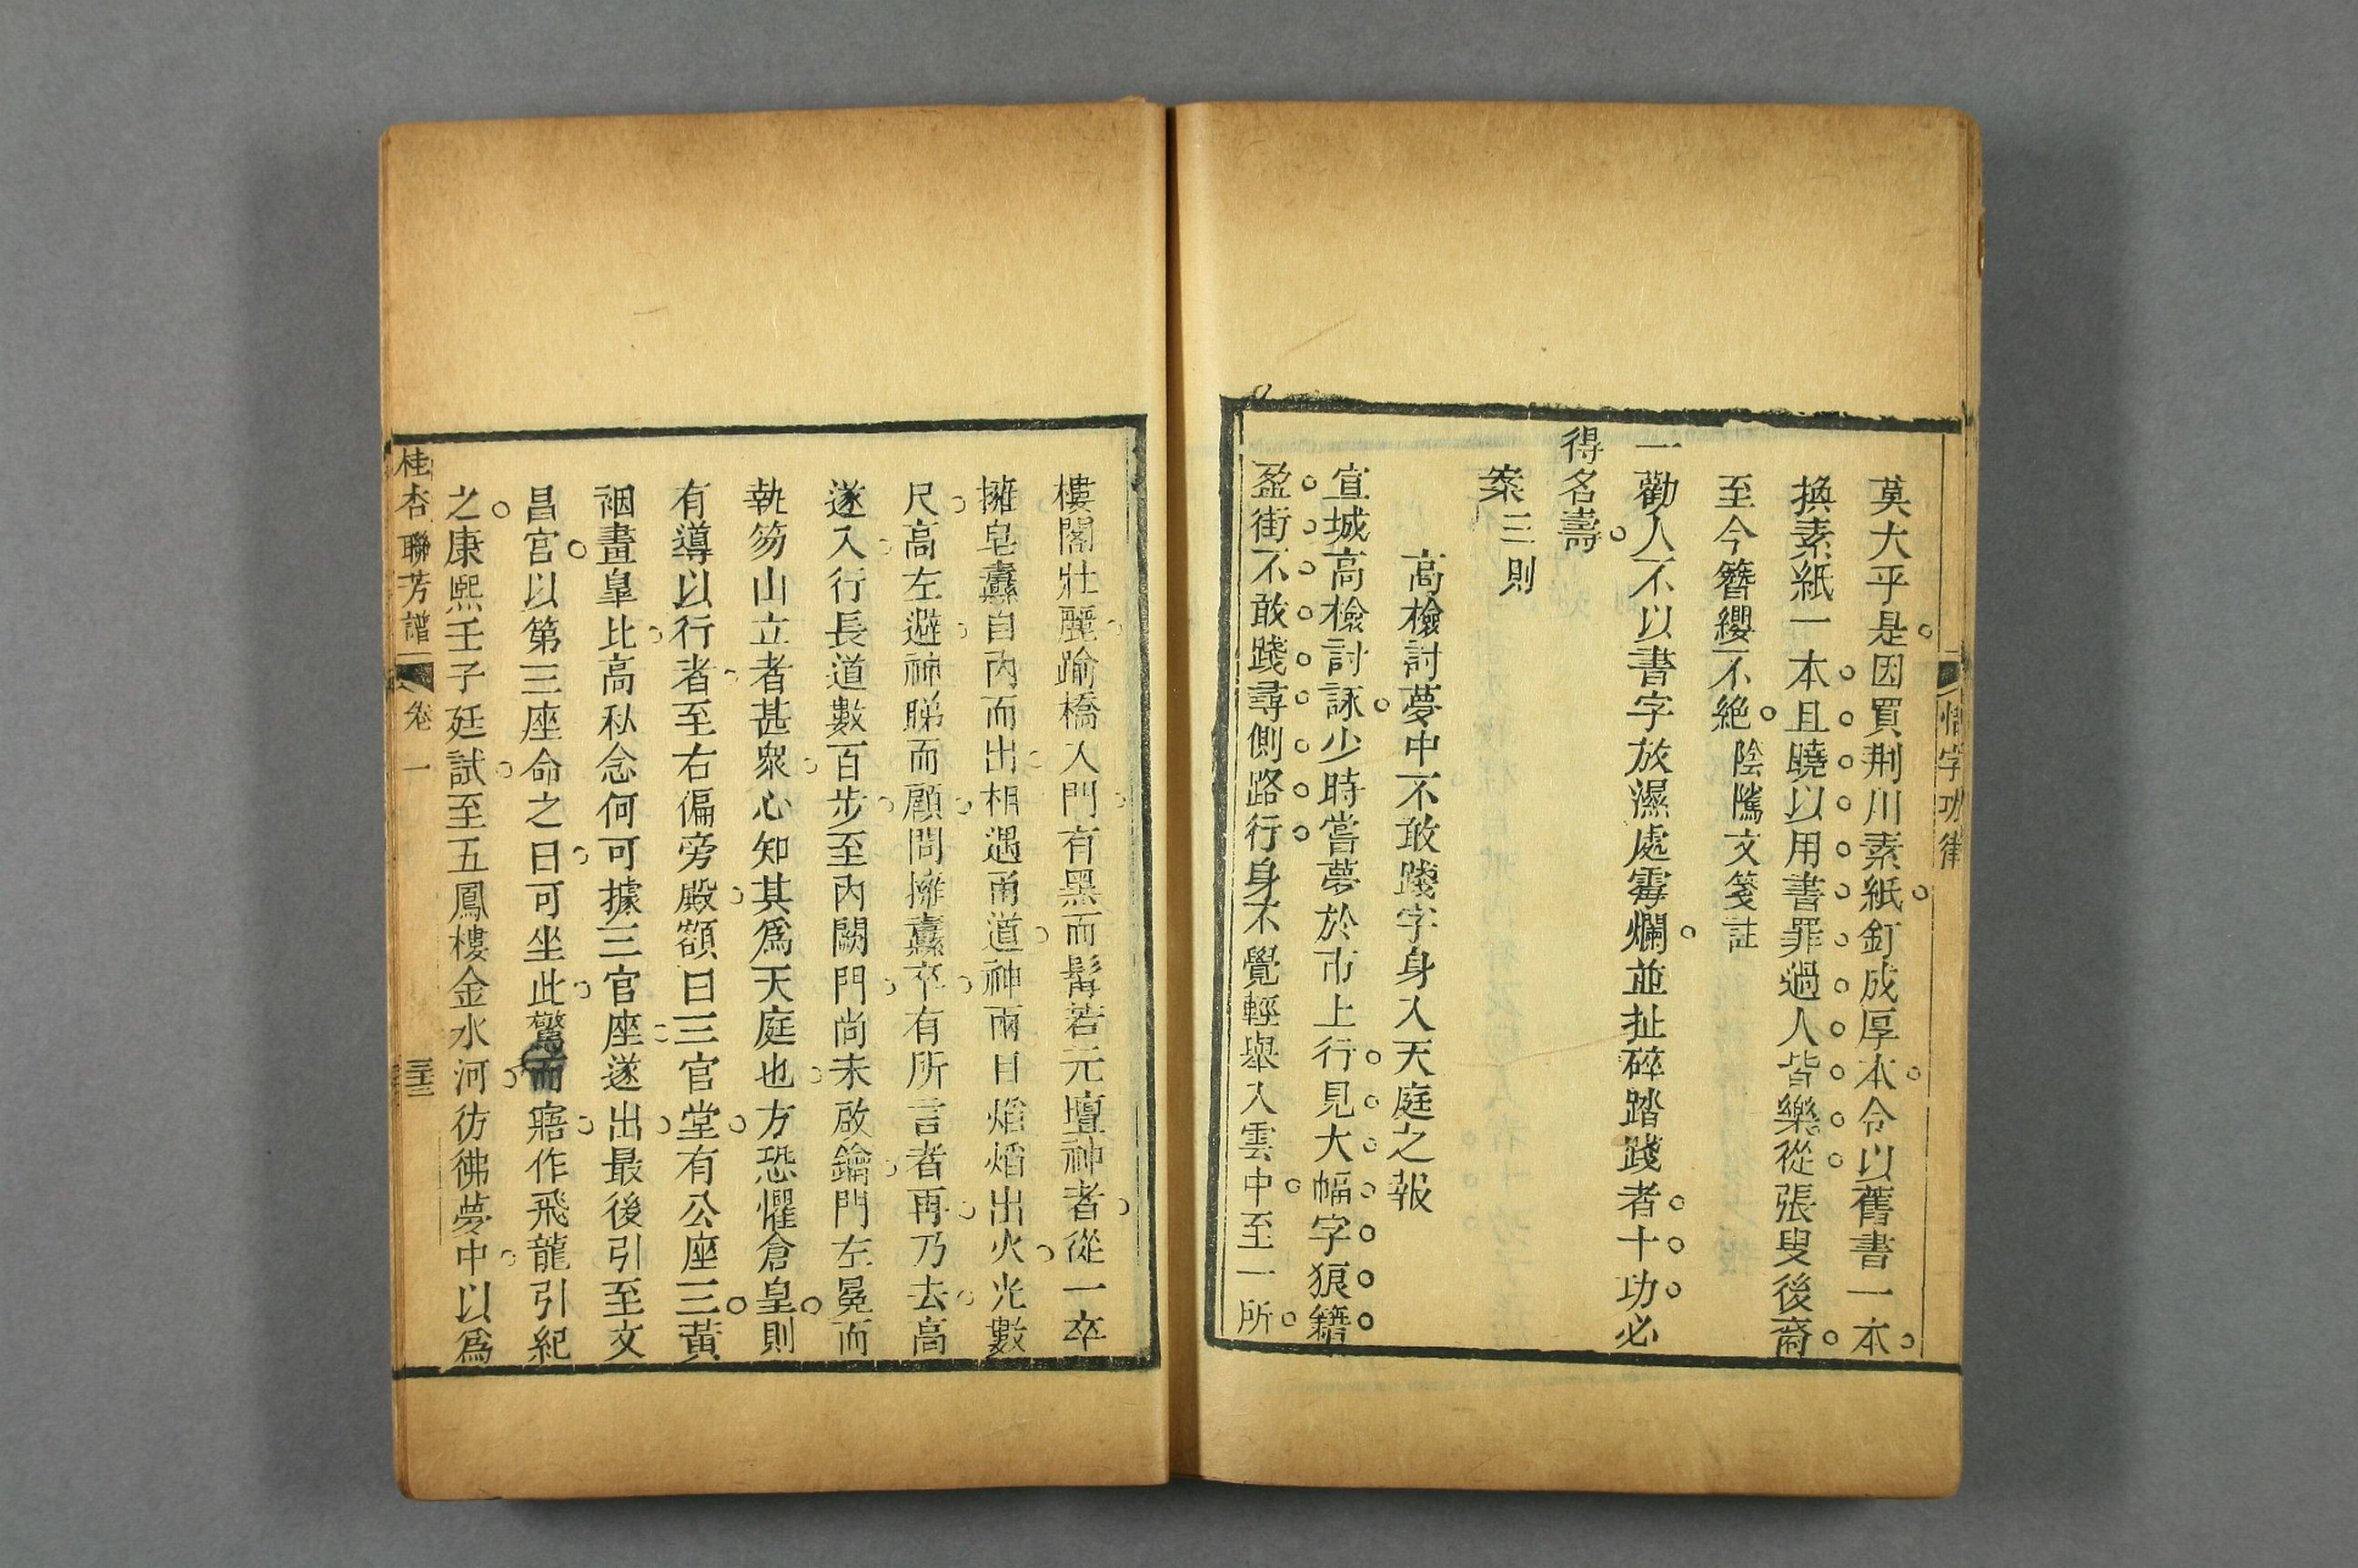 惜字功律
莫大乎是因買荆川素紙釘成厚本令以舊書一本
換素紙一本且曉以用書罪過人皆樂從張叟後裔
至今簪纓不絶陰隲文箋註
一勸人不以書字放濕處霉爛並扯碎踏踐者十功必
得名壽
案三則
高檢討夢中不敢踐字身入天庭之報
宣城高檢討詠少時嘗夢於市上行見大幅字狼籍
盈街不敢踐尋側路行身不覺輕舉入雲中至一所
樓閣壯麗踰橋入門有黑而髯若元壇神者從一卒
擁皂纛自內而出相遇甬道神兩目熖熖出火光數
尺高左避神睇而顧問擁纛卒有所言者再乃去高
遂入行長道數百步至內闕門尚未啟鑰門左冕而
執笏山立者甚衆心知其爲天庭也方恐懼倉皇則
有導以行者至右偏旁殿額曰三官堂有公座三黃
裀畫皐比高私念何可據三官座遂出最後引至文
昌宮以第三座命之曰可坐此驚而寤作飛龍引紀
之康熙壬子廷試至五鳳樓金水河彷彿夢中以爲
桂杏聯芳譜 卷一 三十三